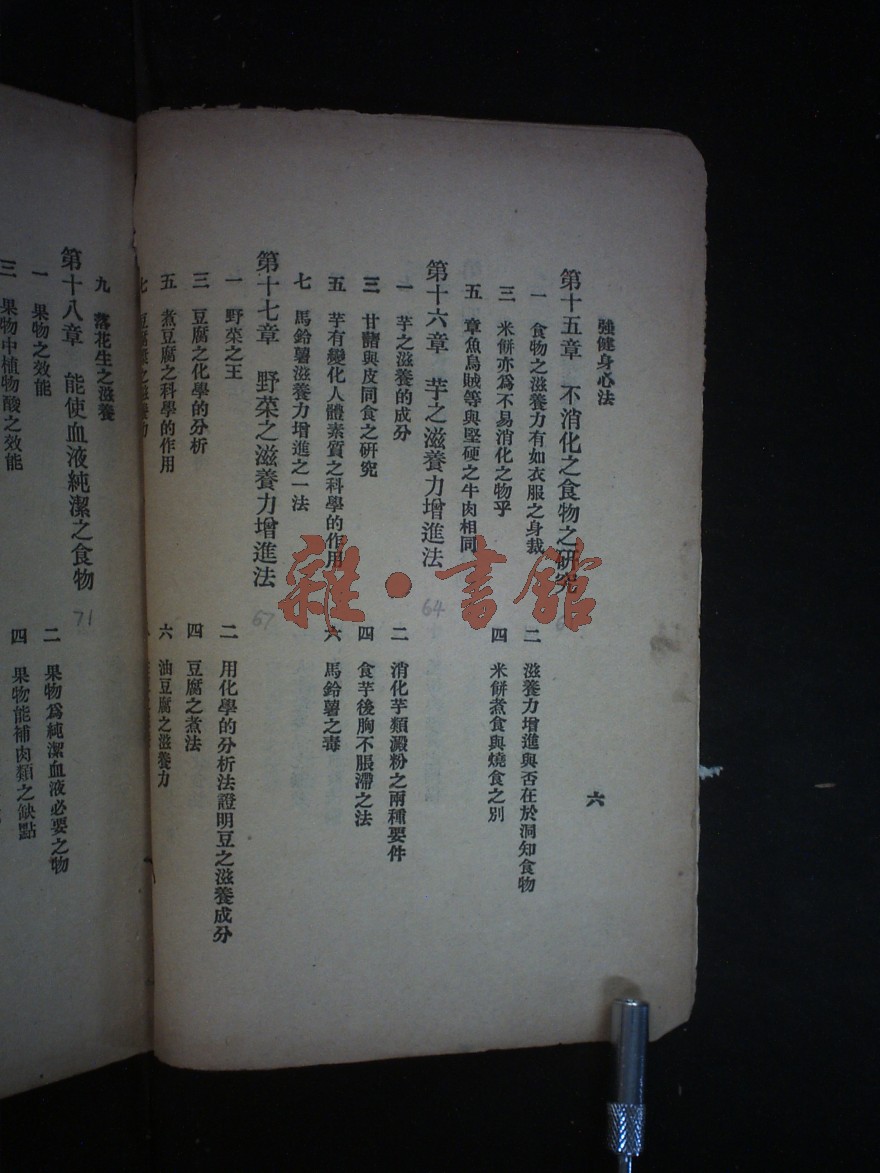 強健身心法
六
第十五章　不消化之食物之研究
一　食物之滋養力有如衣服之身裁
二　滋養力增進與否在於洞知食物
三　米餅亦爲不易消化之物乎
四　米餅煮食與燒食之別
五　章魚烏賊等與堅硬之牛肉相同
第十六章　芋之滋養力增進法
64
一　芋之滋養的成分
二　消化芋類澱粉之兩種要件
三　甘藷與皮同食之研究
四　食芋後胸不脹滯之法
五　芋有變化人體素質之科學的作用
六　馬鈴薯之毒
七　馬鈴薯滋養力增進之一法
第十七章　野菜之滋養力增進法
67
一　野菜之王
二　用化學的分析法證明豆之滋養成分
三　豆腐之化學的分析
四　豆腐之煮法
五　煮豆腐之科學的作用
六　油豆腐之滋養力
七　豆腐
九　落花生之滋養
第十八章　能使血液純潔之食物
71
一　果物之效能
二　果物爲純潔血液必要之物
三　果物中植物酸之效能
四　果物能補肉類之缺點
雜·書館